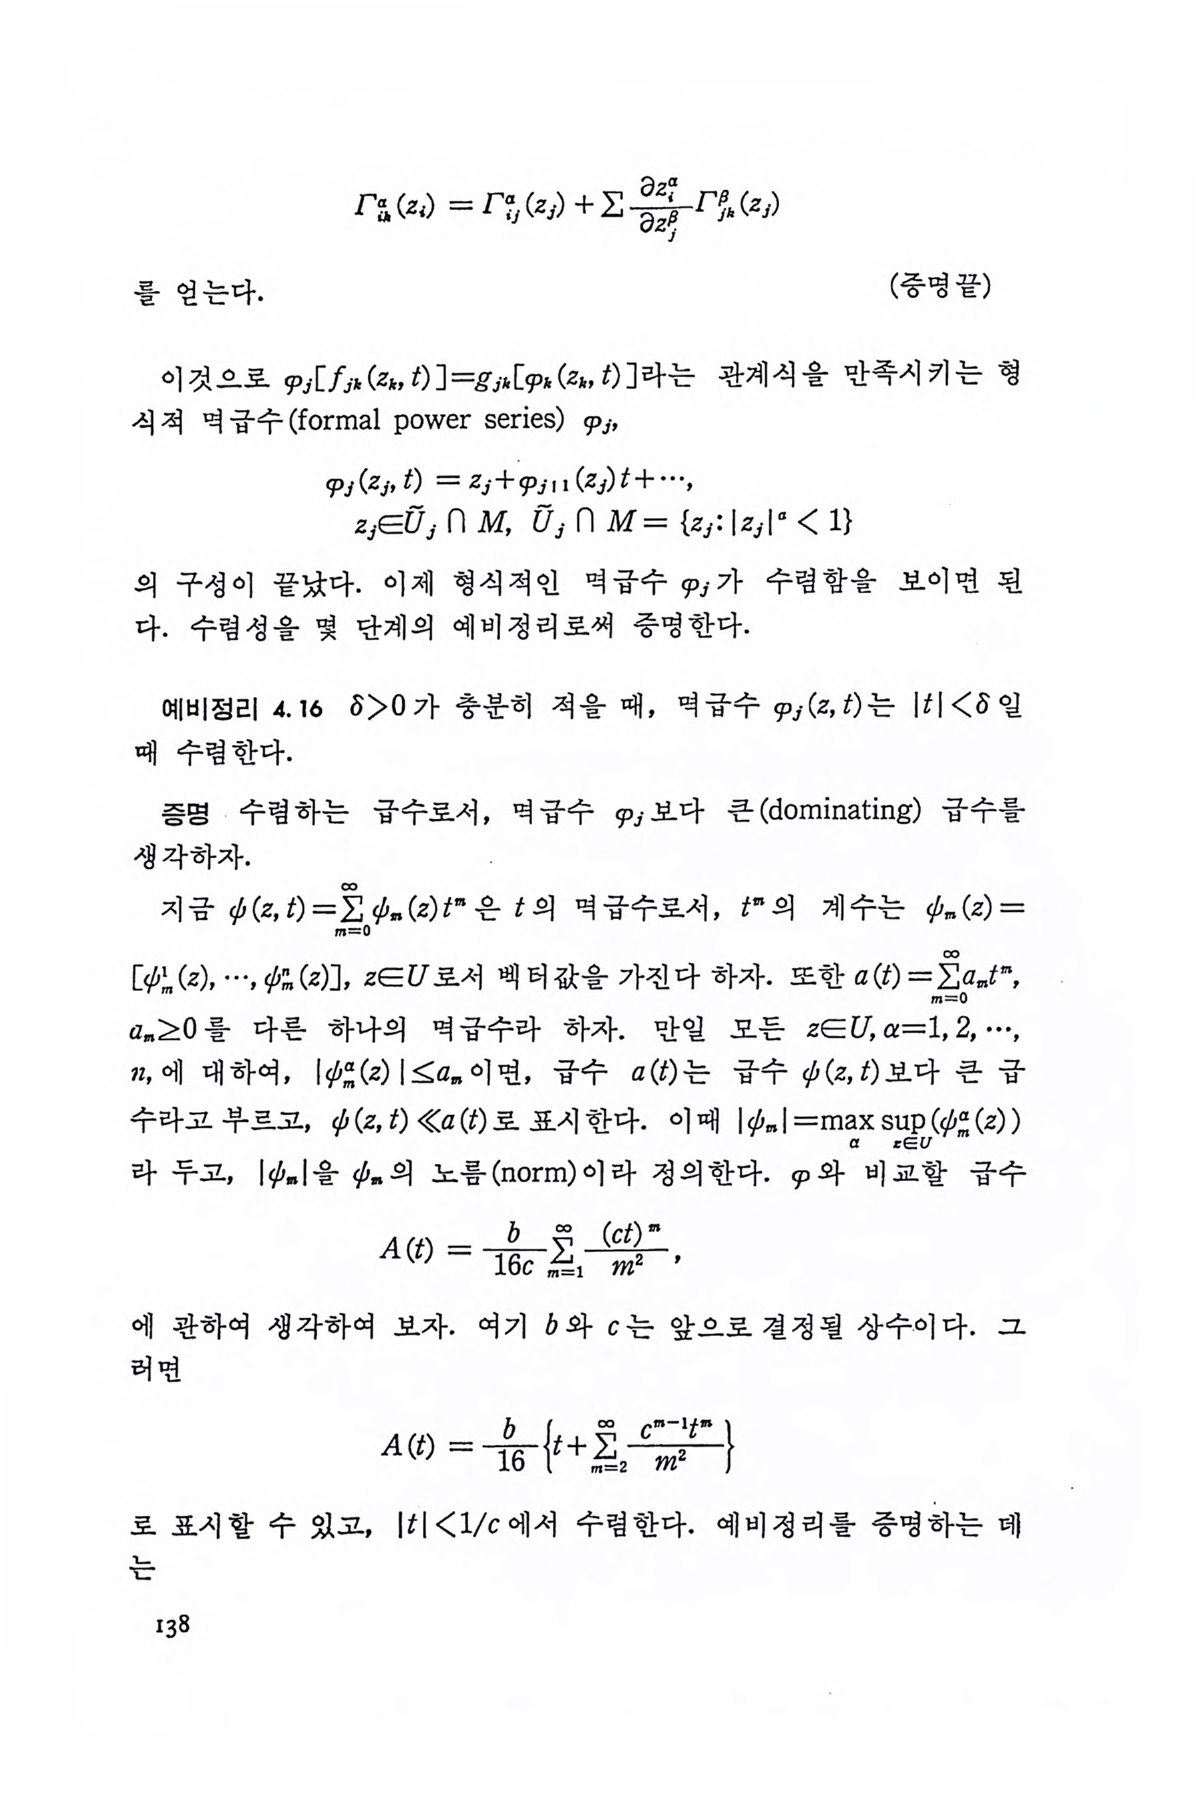 Γ^α_{ik}(z_i) = Γ^α_{ij}(z_j) + Σ ∂z^α_i/∂z^β_j Γ^β_{jk}(z_j)
를 얻는다. (증명끝)
이것으로 φ_j[f_{jk}(z_k, t)]=g_{jk}[φ_k(z_k, t)]라는 관계식을 만족시키는 형
식적 멱급수(formal power series) φ_j,
φ_j(z_j, t) = z_j+φ_{j|1}(z_j)t+⋯,
z_j∈Ũ_j ∩ M, Ũ_j ∩ M = {z_j:|z_j|^α < 1}
의 구성이 끝났다. 이제 형식적인 멱급수 φ_j가 수렴함을 보이면 된
다. 수렴성을 몇 단계의 예비정리로써 증명한다.
예비정리 4.16 δ>0가 충분히 적을 때, 멱급수 φ_j(z, t)는 |t|<δ일
때 수렴한다.
증명 수렴하는 급수로서, 멱급수 φ_j보다 큰(dominating) 급수를
생각하자.
지금 ψ(z, t)=Σ_{m=0}^∞ ψ_m(z)t^m은 t의 멱급수로서, t^m의 계수는 ψ_m(z)=
[ψ^1_m(z), ⋯, ψ^n_m(z)], z∈U로서 벡터값을 가진다 하자. 또한 a(t)=Σ_{m=0}^∞ a_m t^m,
a_m≥0를 다른 하나의 멱급수라 하자. 만일 모든 z∈U, α=1, 2, ⋯,
n, 에 대하여, |ψ^α_m(z)|≤a_m이면, 급수 a(t)는 급수 ψ(z, t)보다 큰 급
수라고 부르고, ψ(z, t)≪a(t)로 표시한다. 이때 |ψ_m|=max_α sup_{z∈U}(ψ^α_m(z))
라 두고, |ψ_m|을 ψ_m의 노름(norm)이라 정의한다. φ와 비교할 급수
A(t) = b/16c Σ_{m=1}^∞ (ct)^m/m²,
에 관하여 생각하여 보자. 여기 b와 c는 앞으로 결정될 상수이다. 그
러면
A(t) = b/16 {t+Σ_{m=2}^∞ c^{m-1}t^m/m²}
로 표시할 수 있고, |t|<1/c에서 수렴한다. 예비정리를 증명하는 데
는
138